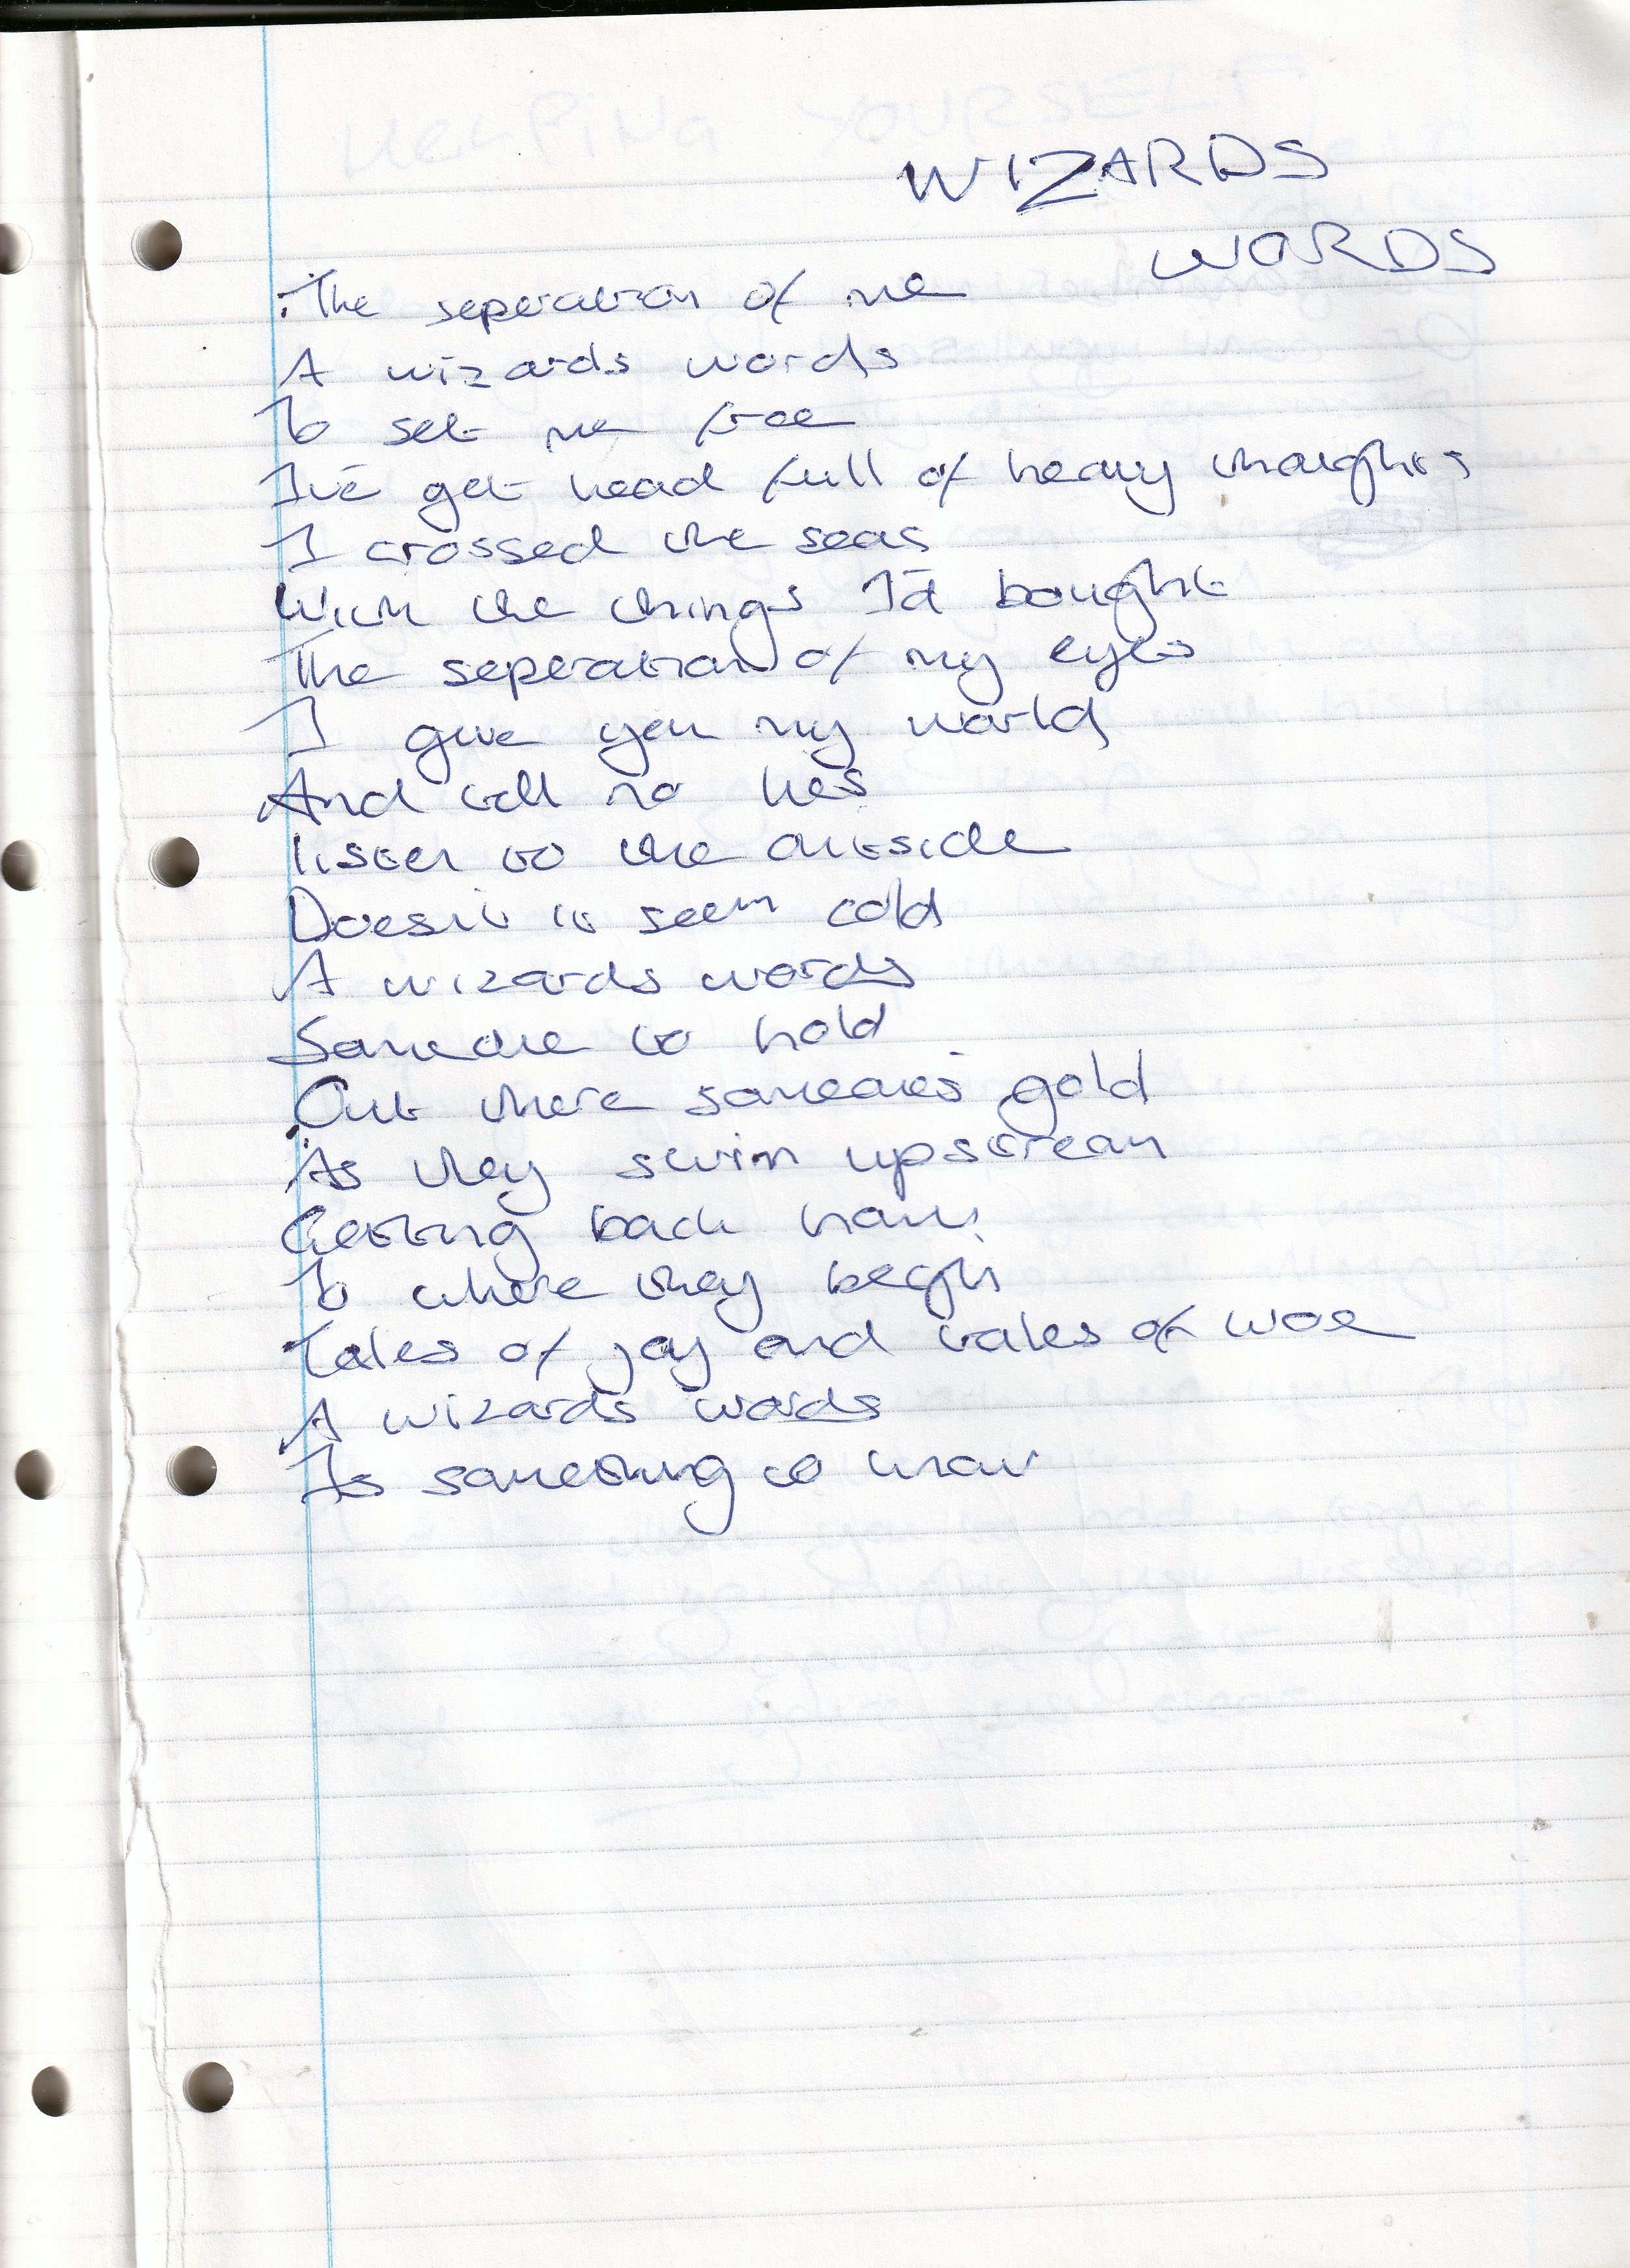 WIZARDS
WORDS
The seperation of me
A wizards words
To set me free
I've get head full of heavy thoughts
I crossed the seas
With the things I'd bought
The seperation of my eyes
I give you my world
And tell no lies
listen to the outside
Doesn't it seem cold
A wizards words
Someone to hold
Out there someones gold
As they swim upstream
Getting back home
To where they begin
Tales of joy and tales of woe
A wizards words
Is something to know